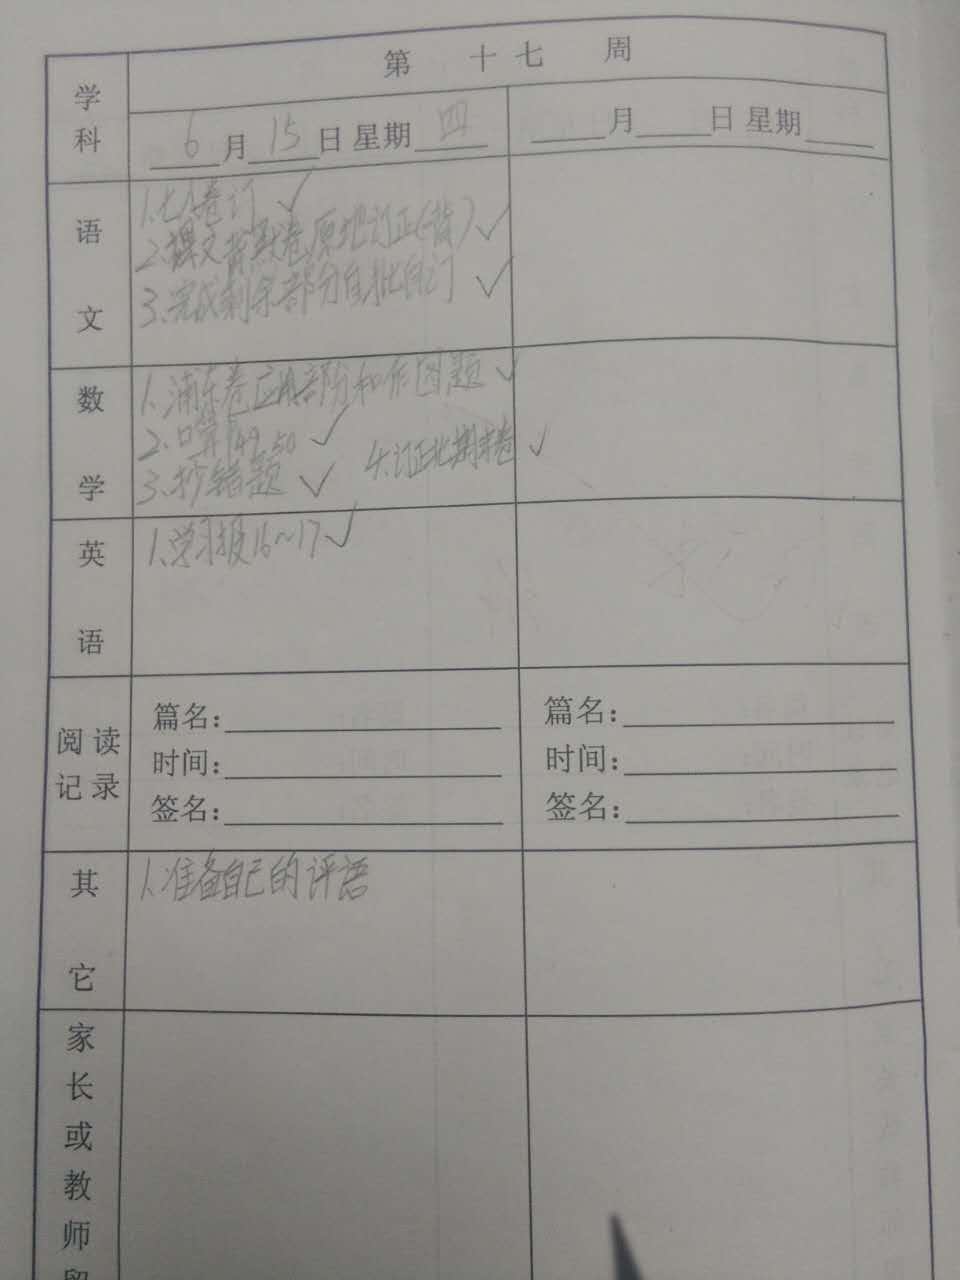 第 十七 周
学科
6月15日 星期四
___月___日 星期___
语文
1.七八卷订 ✓
2.课文背默卷原地订正(背) ✓
3.完成剩余部分自批自订 ✓
数学
1.浦东卷应用部份和作图题 ✓
2.口算49.50 ✓
3.抄错题 ✓
4.订正北期末卷 ✓
英语
1.学习报16~17 ✓
阅读记录
篇名：
时间：
签名：
篇名：
时间：
签名：
其它
1.准备自己的评语
家长或教师留